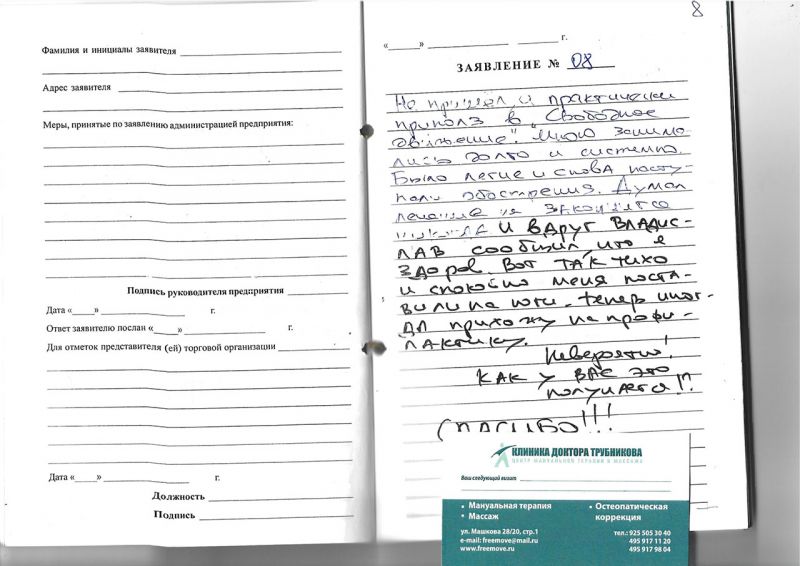 Фамилия и инициалы заявителя
Адрес заявителя
Меры, принятые по заявлению администрацией предприятия:
Подпись руководителя предприятия
Дата «____» г.
Ответ заявителю послан «____» г.
Для отметок представителя (ей) торговой организации
Дата «____» г.
Должность
Подпись
8
«____» г.
ЗАЯВЛЕНИЕ № 08
Не пришел, а практически
приполз в "Свободное
движение". Мною занима
лись долго и системно.
Было легче и снова насту
пали обострения. Думал
лечение не закончится
никогда и вдруг Владис-
лав сообщил, что я
здоров. Вот так тихо
и спокойно меня поста-
вили на ноги. Теперь иног-
да прихожу на профи-
лактику.
Невероятно!
Как у вас это
получается!?
Спасибо!!!
КЛИНИКА ДОКТОРА ТРУБНИКОВА
ЦЕНТР МАНУАЛЬНОЙ ТЕРАПИИ И МАССАЖА
Ваш следующий визит
• Мануальная терапия
• Массаж
• Остеопатическая
коррекция
ул. Машкова 28/20, стр.1
e-mail: freemove@mail.ru
www.freemove.ru
тел.: 925 505 30 40
495 917 11 20
495 917 98 04